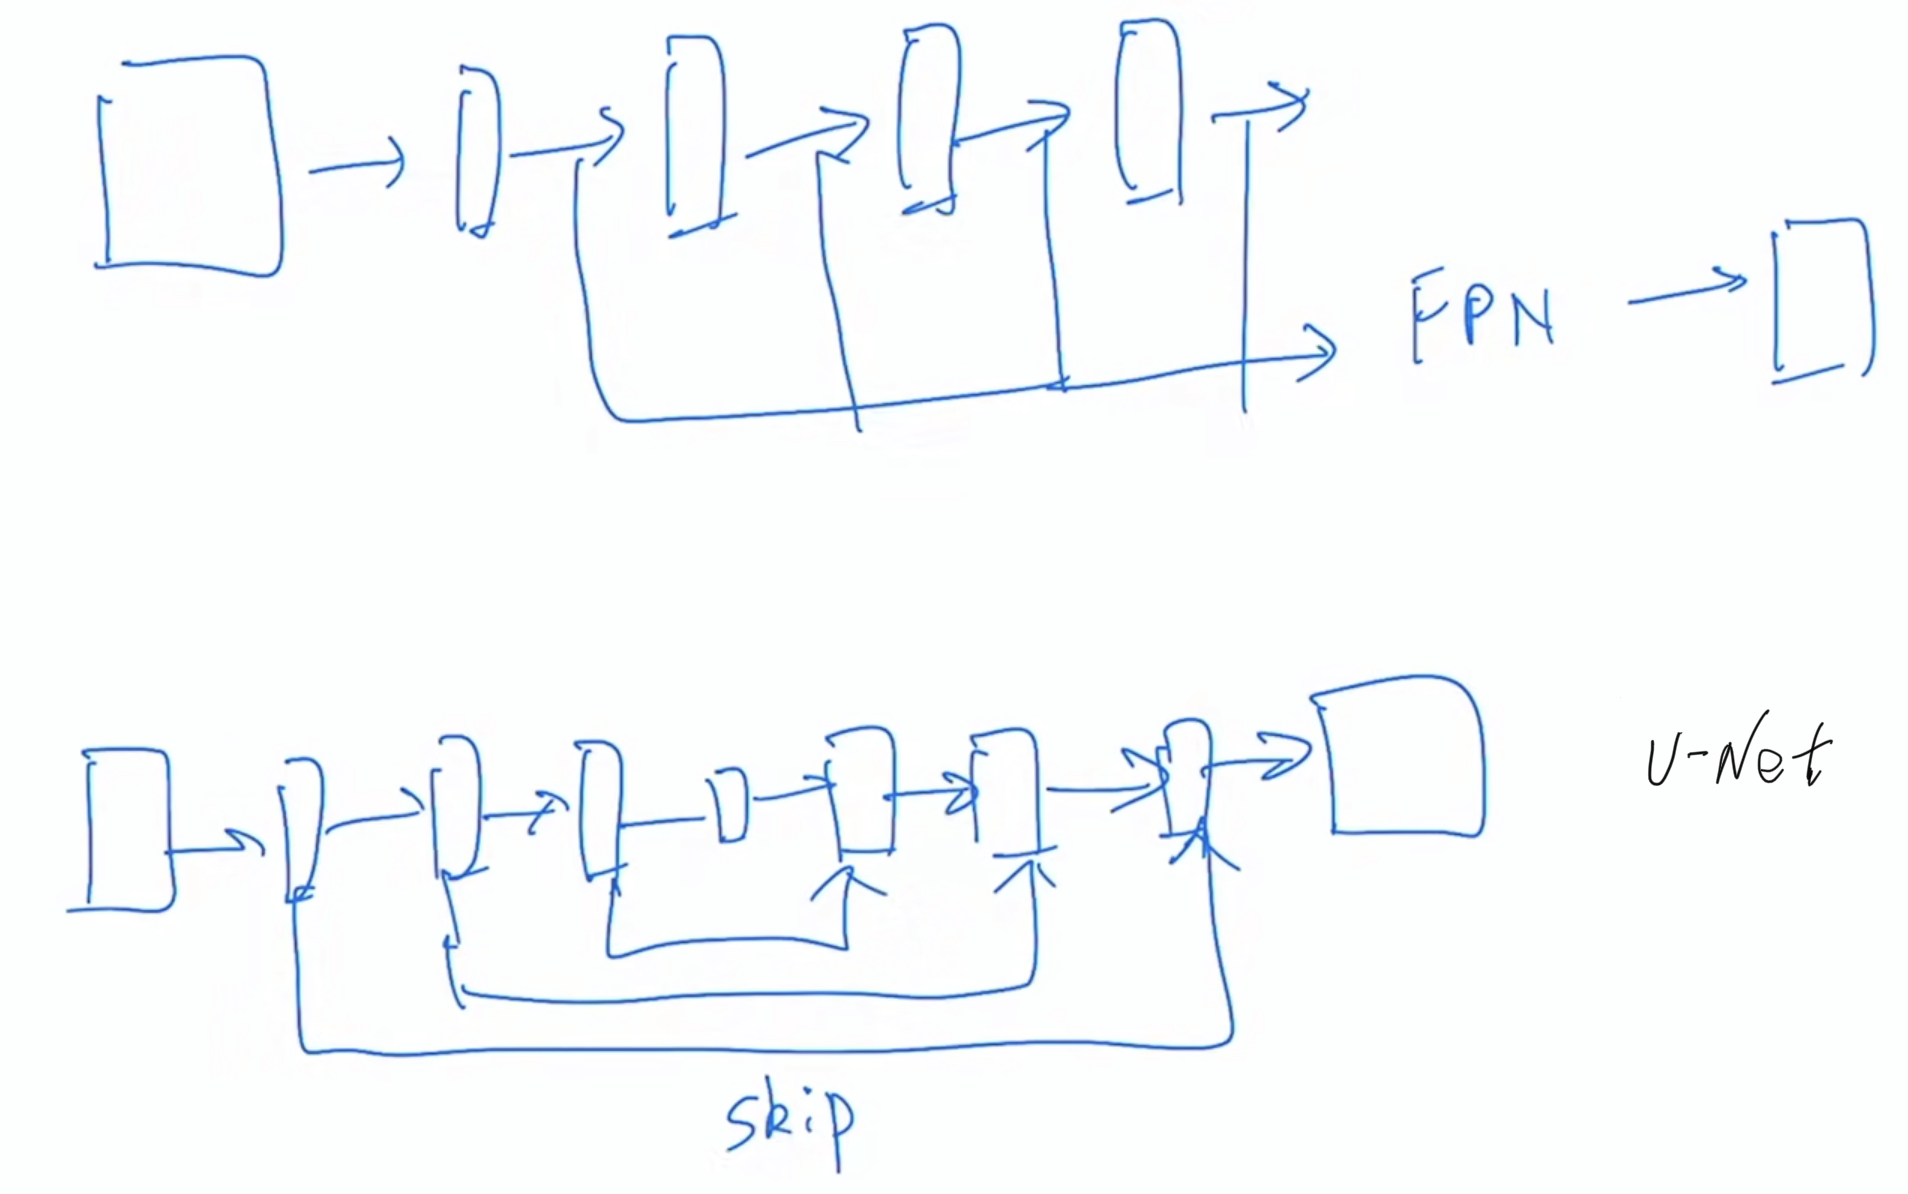 FPN
U-Net
skip